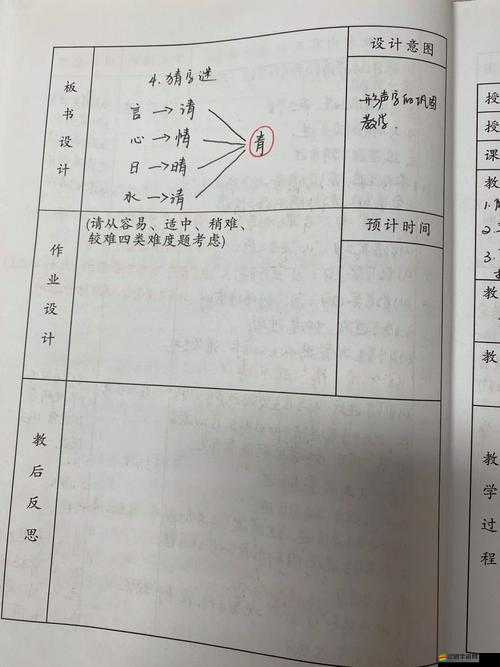 板书设计
4.猜字谜
言→请
心→情
日→晴
水→清
青
设计意图
形声字的巩固
教学.
作业设计
(请从容易、适中、稍难、
较难四类难度题考虑)
预计时间
教后反思
授
授
课
教
1.
2.
3.
教
教学过程